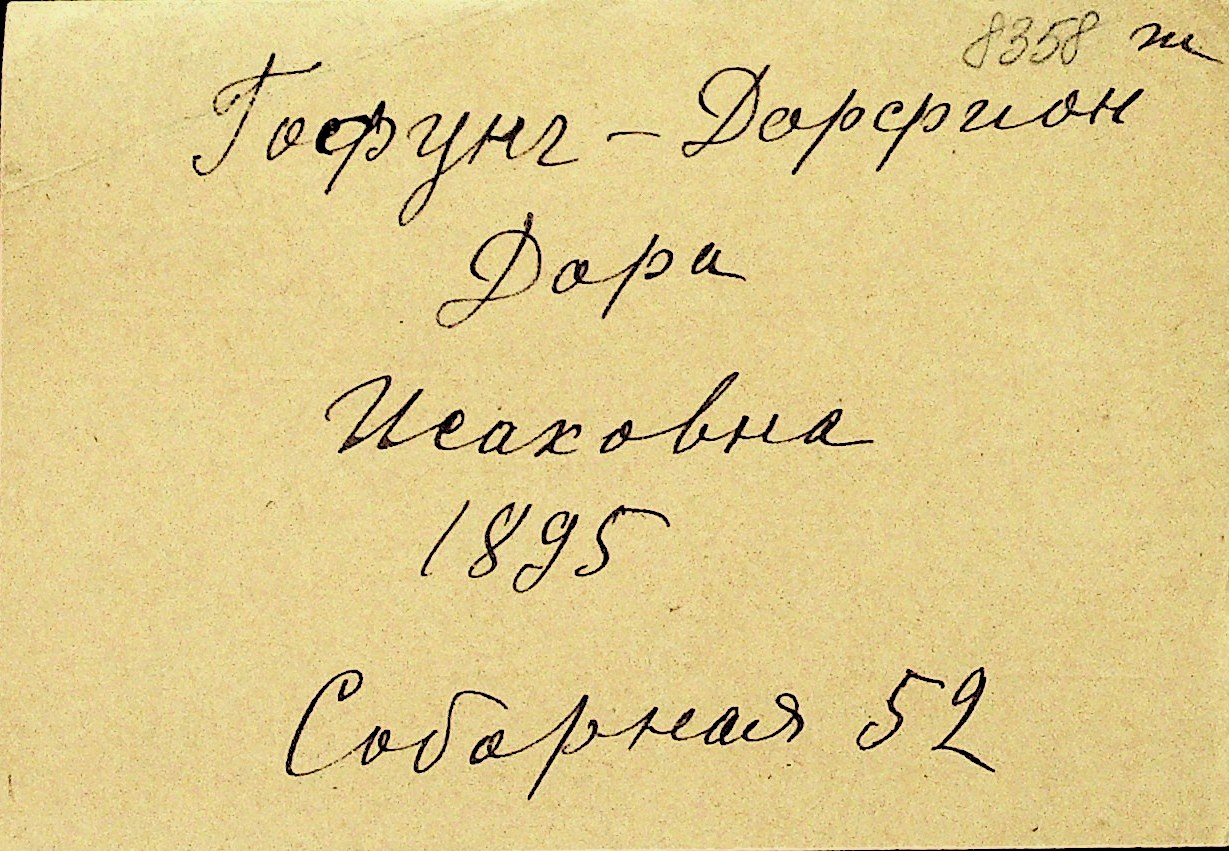 8358 ж
Гофунг - Дорфион
Дора
Исаковна
1895
Соборная 52